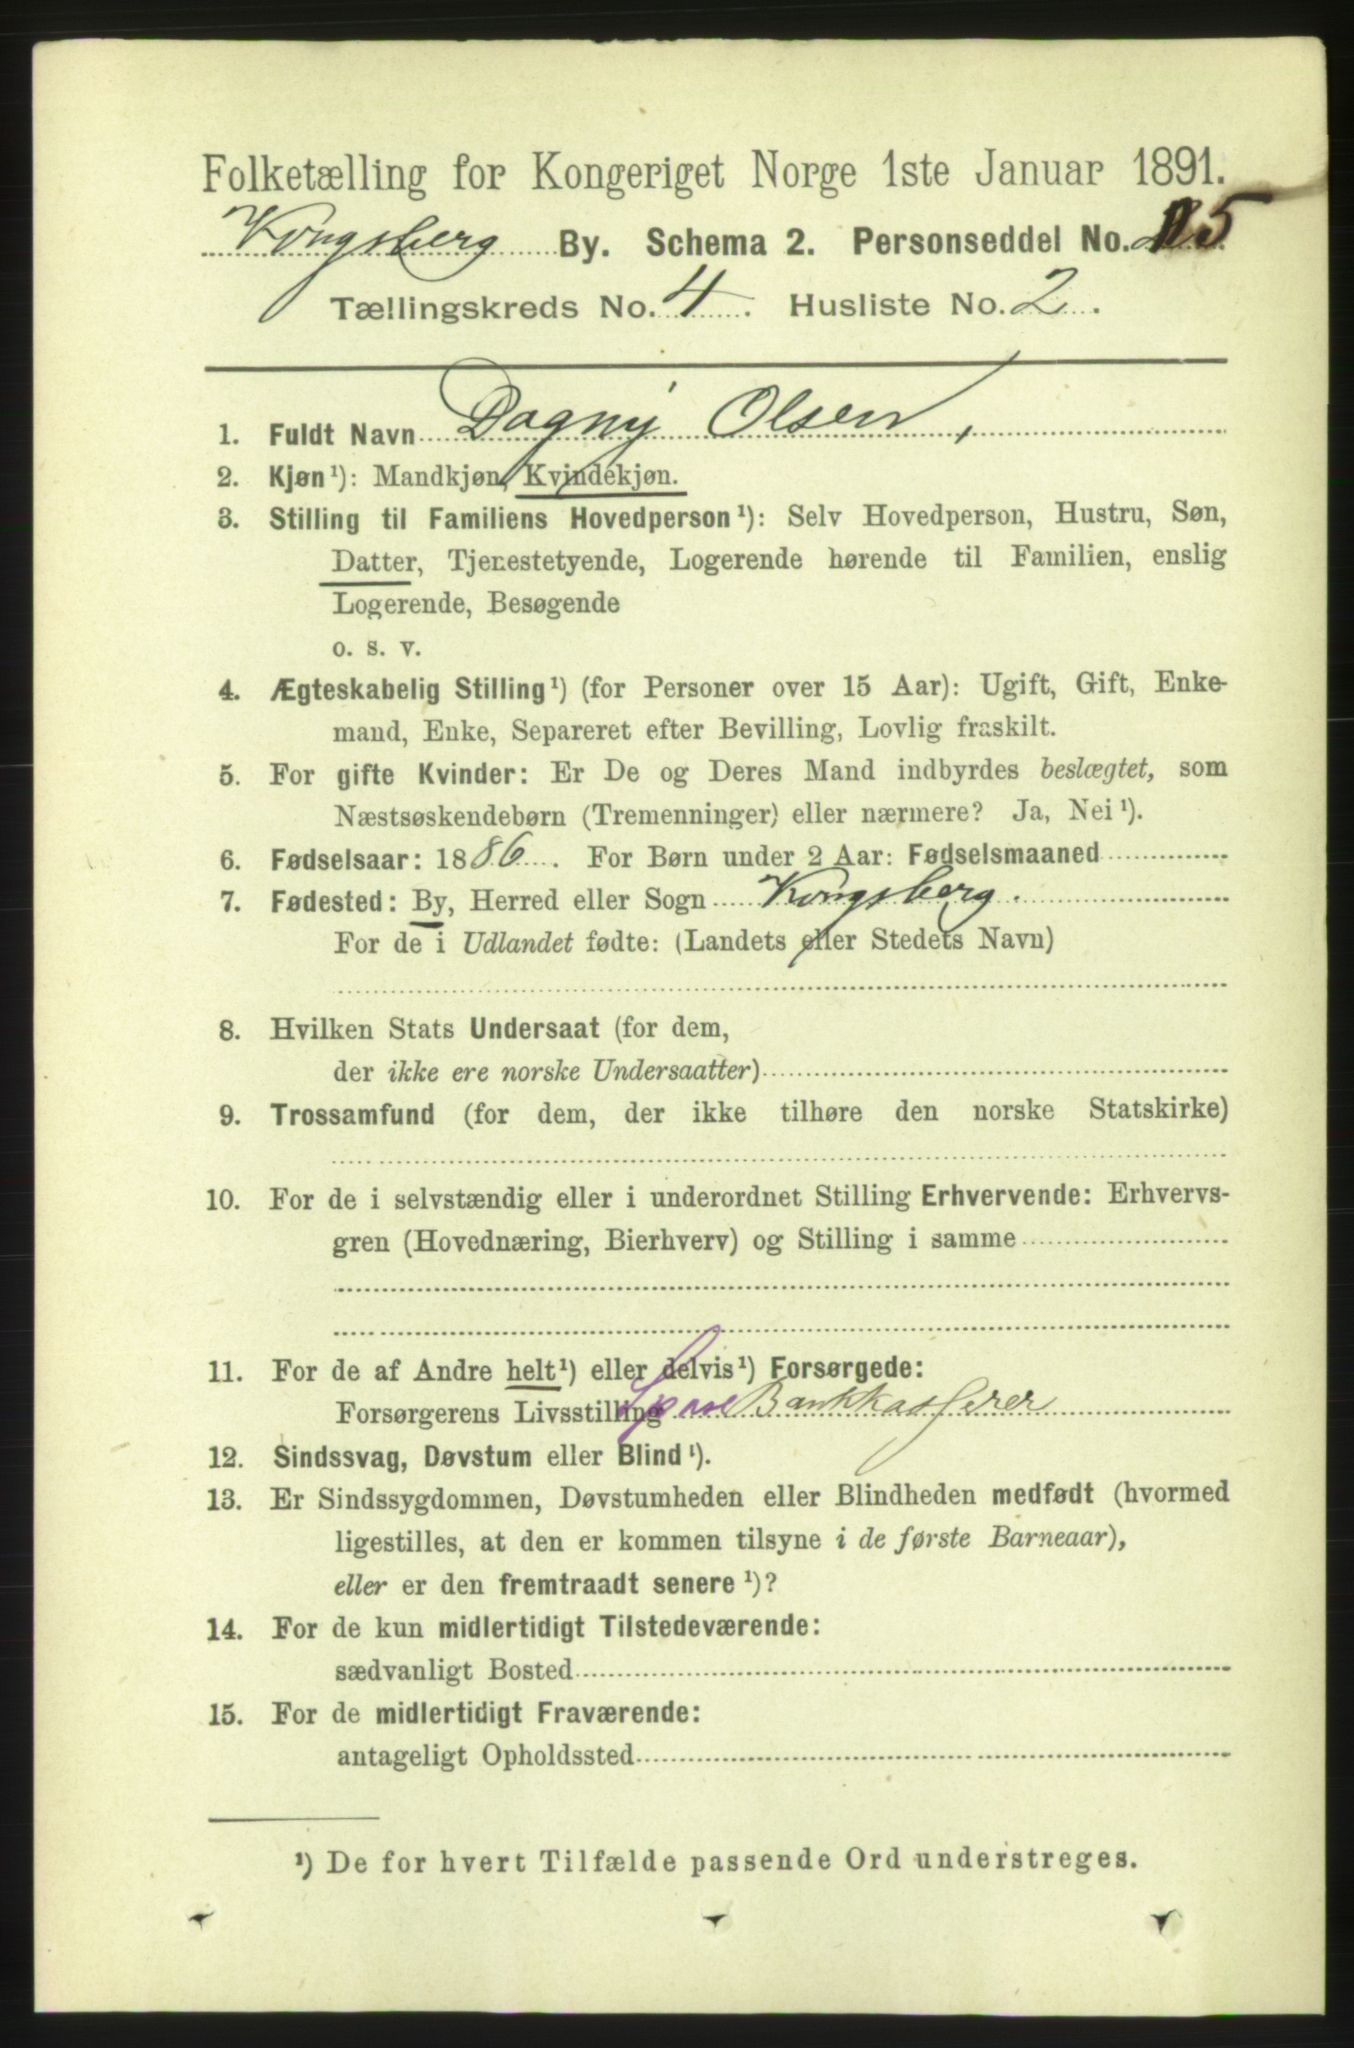 Folketælling for Kongeriget Norge 1ste Januar 1891.
Kongsberg By. Schema 2. Personseddel No.
Tællingskreds No. 4. Husliste No. 2.
1. Fuldt Navn Dagny Olsen,
2. Kjøn¹): Mandkjøn, Kvindekjøn.
3. Stilling til Familiens Hovedperson¹): Selv Hovedperson, Hustru, Søn,
Datter, Tjenestetyende, Logerende hørende til Familien, enslig
Logerende, Besøgende
o. s. v.
4. Ægteskabelig Stilling¹) (for Personer over 15 Aar): Ugift, Gift, Enke-
mand, Enke, Separeret efter Bevilling, Lovlig fraskilt.
5. For gifte Kvinder: Er De og Deres Mand indbyrdes beslægtet, som
Næstsøskendebørn (Tremenninger) eller nærmere? Ja, Nei¹).
6. Fødselsaar: 1886. For Børn under 2 Aar: Fødselsmaaned
7. Fødested: By, Herred eller Sogn Kongsberg.
For de i Udlandet fødte: (Landets eller Stedets Navn)
8. Hvilken Stats Undersaat (for dem,
der ikke ere norske Undersaatter)
9. Trossamfund (for dem, der ikke tilhøre den norske Statskirke)
10. For de i selvstændig eller i underordnet Stilling Erhvervende: Erhvervs-
gren (Hovednæring, Bierhverv) og Stilling i samme
11. For de af Andre helt¹) eller delvis¹) Forsørgede:
Forsørgerens Livsstilling SpareBankkasserer
12. Sindssvag, Døvstum eller Blind¹).
13. Er Sindssygdommen, Døvstumheden eller Blindheden medfødt (hvormed
ligestilles, at den er kommen tilsyne i de første Barneaar),
eller er den fremtraadt senere¹)?
14. For de kun midlertidigt Tilstedeværende:
sædvanligt Bosted
15. For de midlertidigt Fraværende:
antageligt Opholdssted
¹) De for hvert Tilfælde passende Ord understreges.